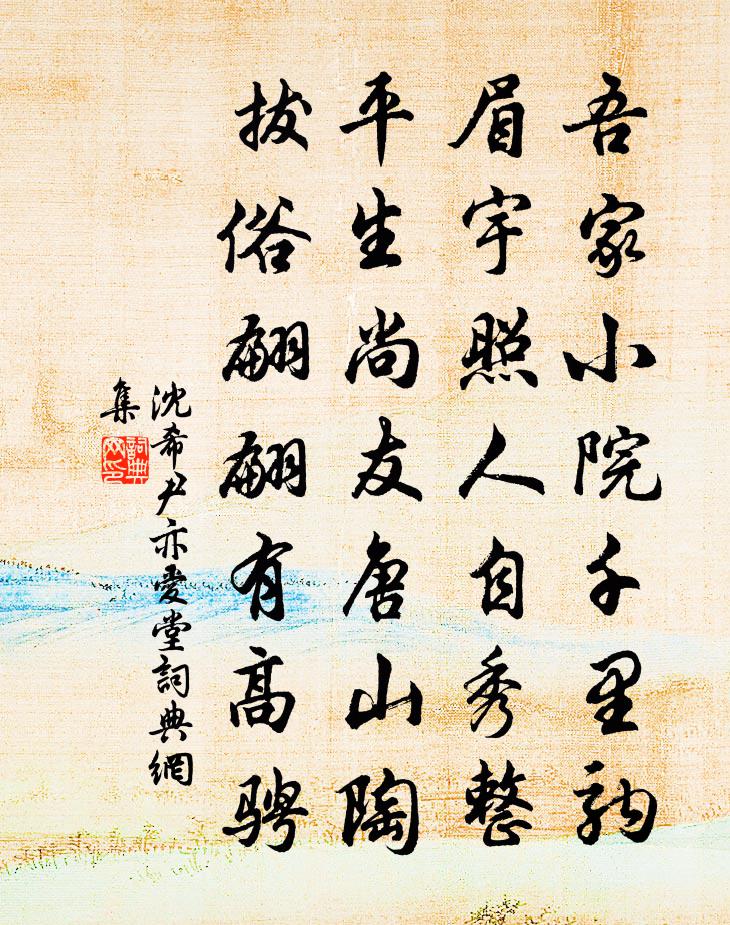 吾家小院千里駒
眉宇照人自秀整
平生尚友唐山陶
拔俗翩翩有高騁
沈希尹亦愛堂詞典網
集
詞典
网印